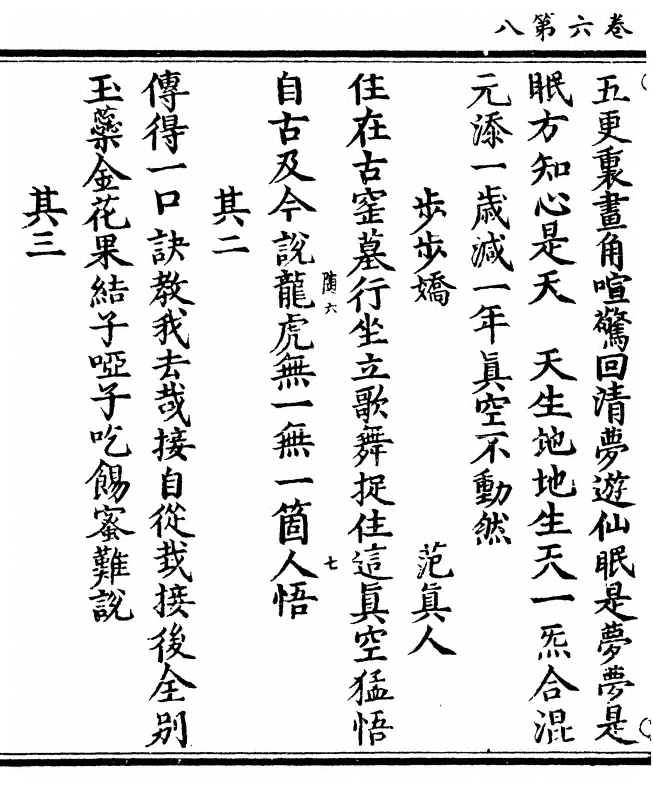 卷六第八
五更裏畫角喧驚回清夢遊仙眠是夢夢是
眠方知心是天　天生地地生天一炁合混
元添一歳減一年眞空不動然
步步嬌　范眞人
住在古窑墓行坐立歌舞捉住這眞空猛悟
陶六　七
自古及今說龍虎無一無一箇人悟
其二
傳得一口訣教我去㘽接自從㘽接後全别
玉蘂金花果結子啞子吃餳蜜難說
其三